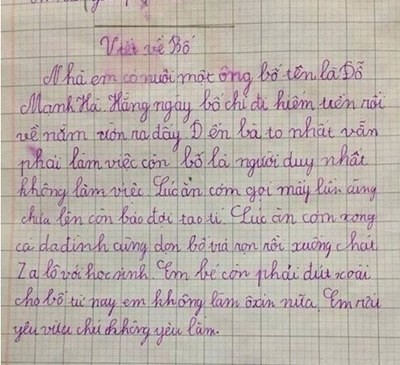 Viết về Bố
Nhà em có nuôi một ông bố tên là Đỗ
Mạnh Hà. Hằng ngày bố chỉ đi kiếm tiền rồi
về nằm ườn ra đấy Đến bà to nhất vẫn
phải làm việc còn bố là người duy nhất
không làm việc. Lúc ăn cơm gọi mấy lần cũng
chưa lên còn bảo đợi tao tí. Lúc ăn cơm xong
cả da đình cùng dọn bố vừa rọn rồi xuống chat
Za lô với học sinh. Em bé còn phải đút xoài
cho bố từ nay em không làm ôxin nữa. Em rêu
yêu vừa chứ không yêu lắm.